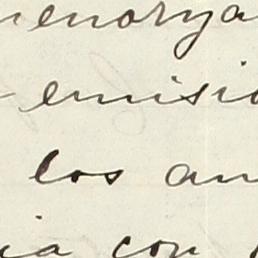 enorya
emisio
los an
ia con